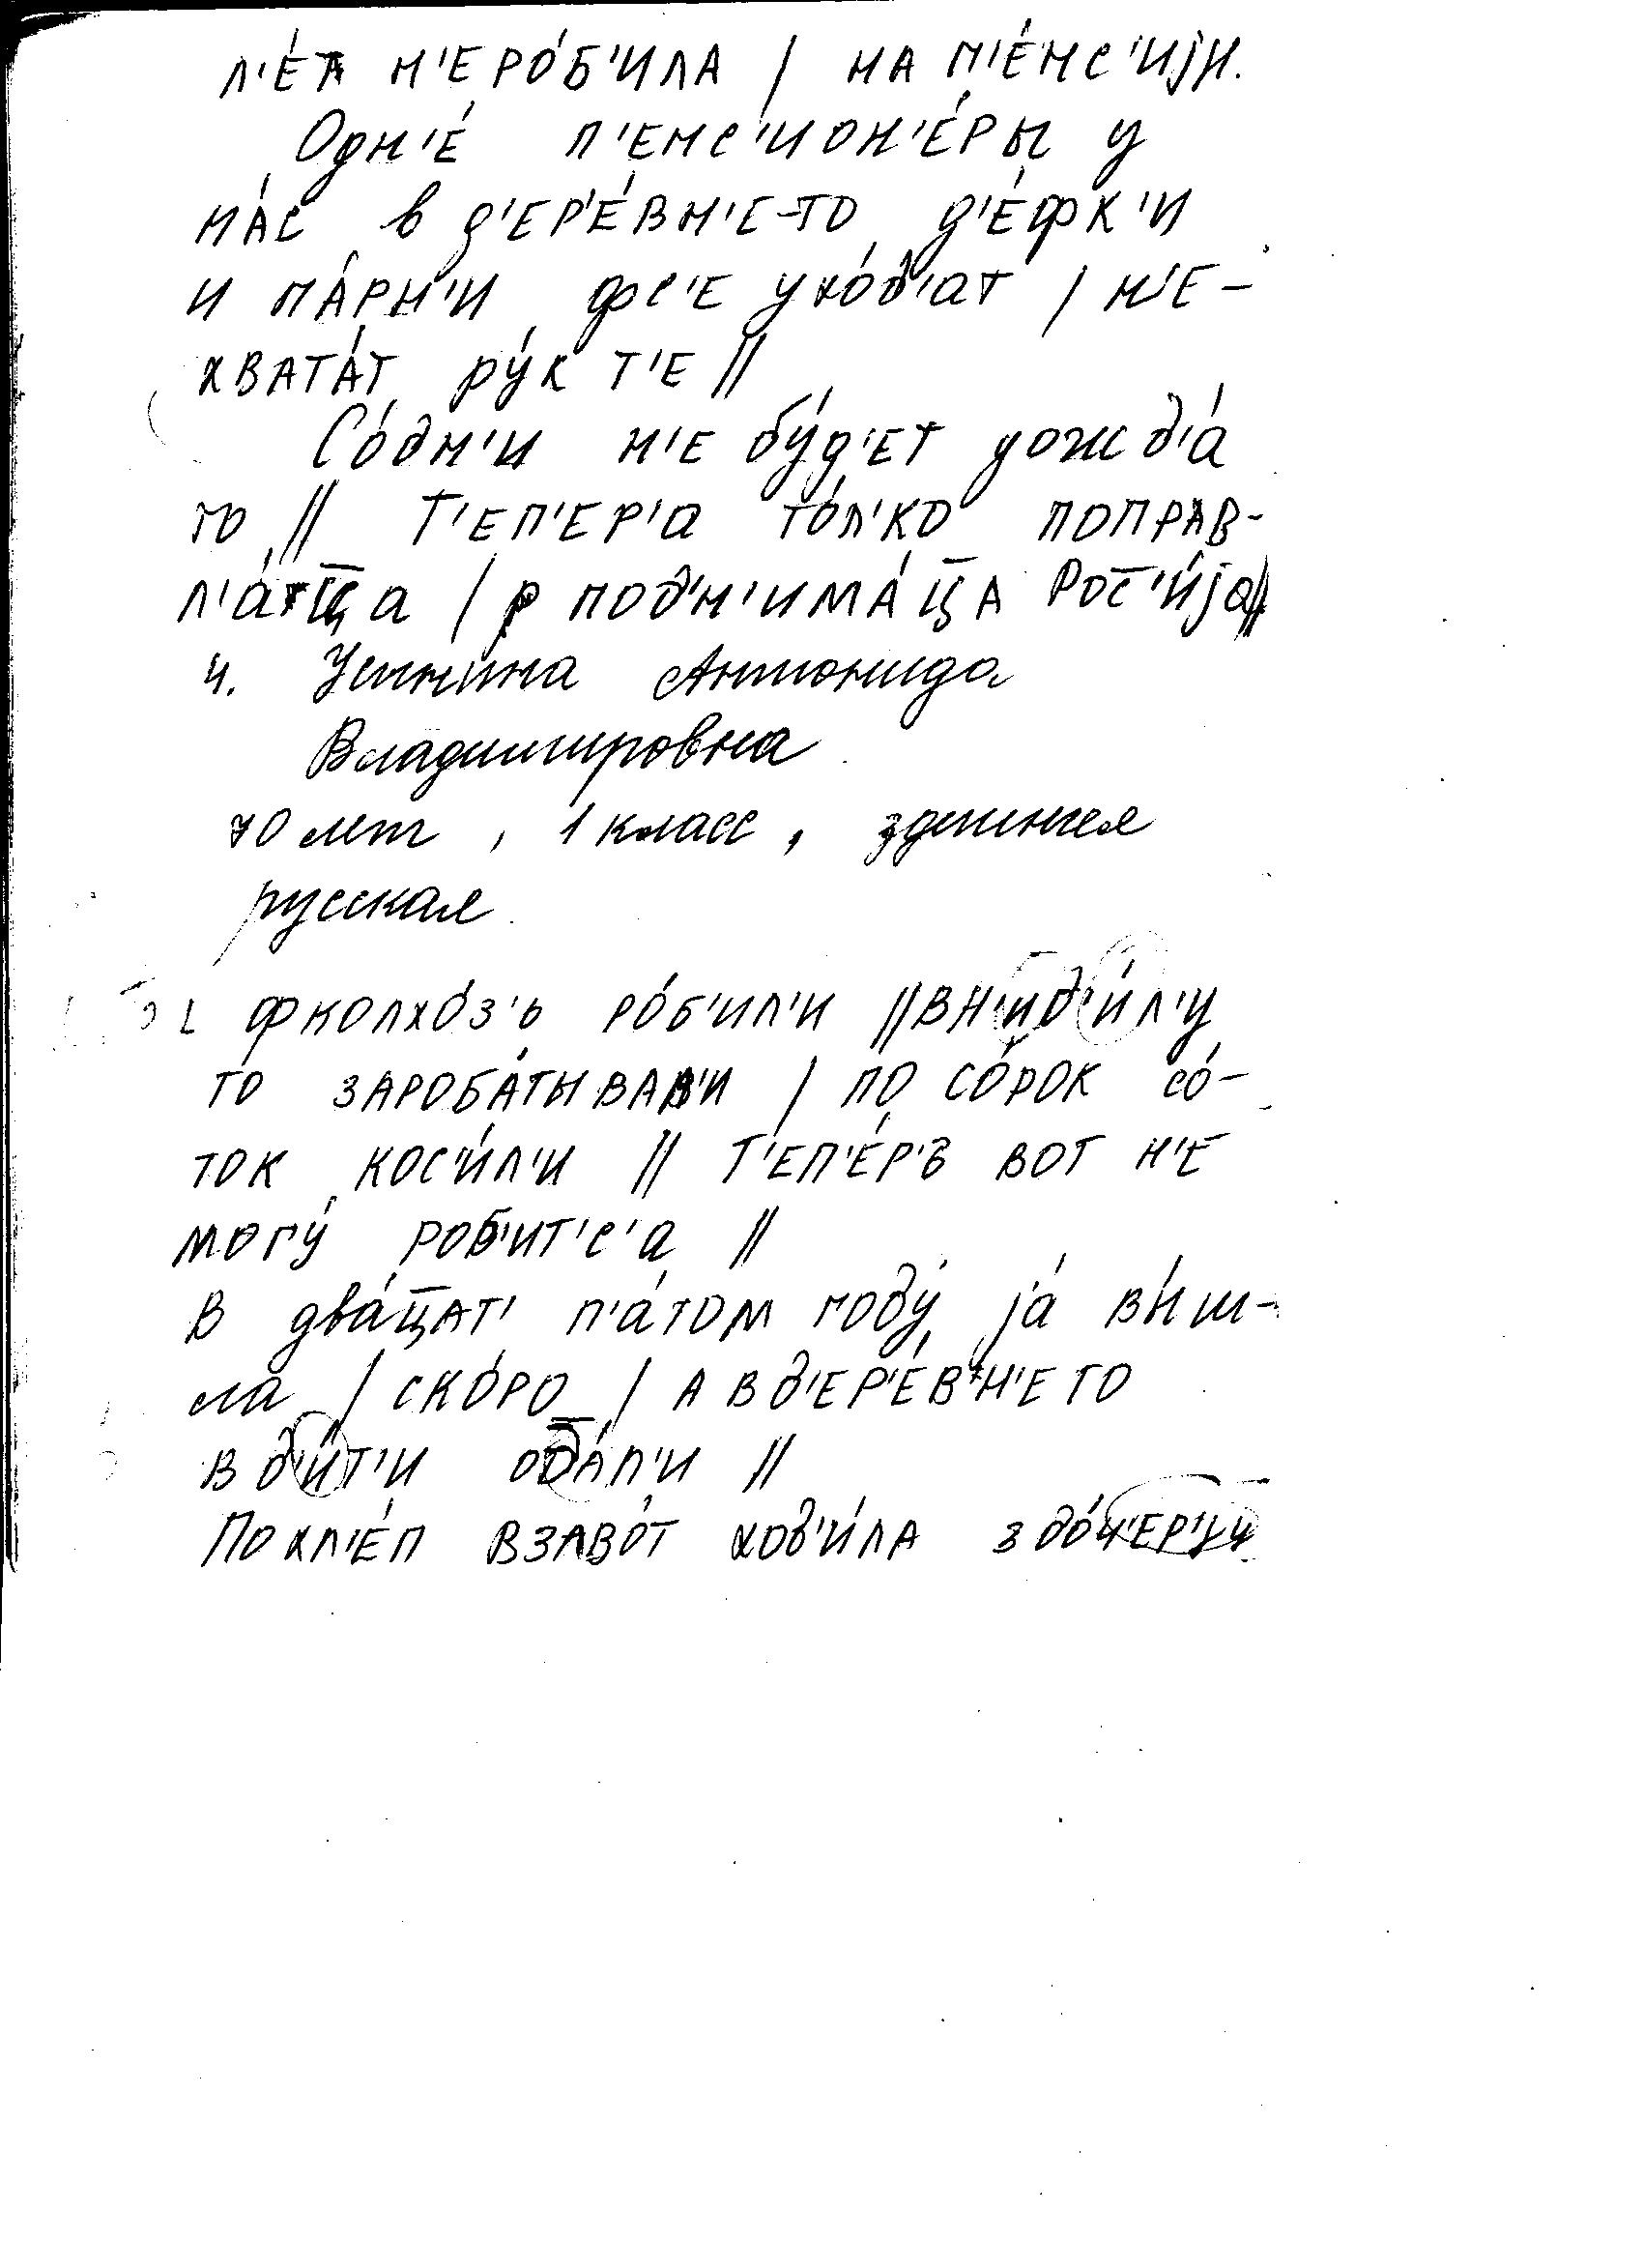 л'е́та н'еро́б'ила / на п'е́нс'иjи.
Одн'е́ п'енс'ион'е́ры у
на́с в д'ер'е́вн'е-то д'е́фк'и
и па́рн'и фс'е ухо́д'ат / н'е-
хвата́т ру́к т'е //
Со́дн'и н'е бу́д'ет дожд'а́
то // Т'еп'ер'а то́л'ко поправ-
л'а́ц̅а / подн'има́ц̅а Рос̅'и́jа //
4. Устинина Антонида
Владимировна
70 лет, 1 класс, здешняя
русская.
фколхо́з'ь ро́б'ил'и // вн'ид'и́л'у
то зароба́тывал'и / по со́рок со́-
ток кос'и́л'и // Т'еп'е́р'ь вот н'е
могу́ роб'ит'с'а //
В два́ц̅ат' п'а́том году́ jа́ вы́ш-
ла / ско́ро / а вд'ер'е́вн'ето
в д'и́т'и од̅а́л'и //
По хл'е́п взаво́т ход'и́ла здо́ч'ер'уу